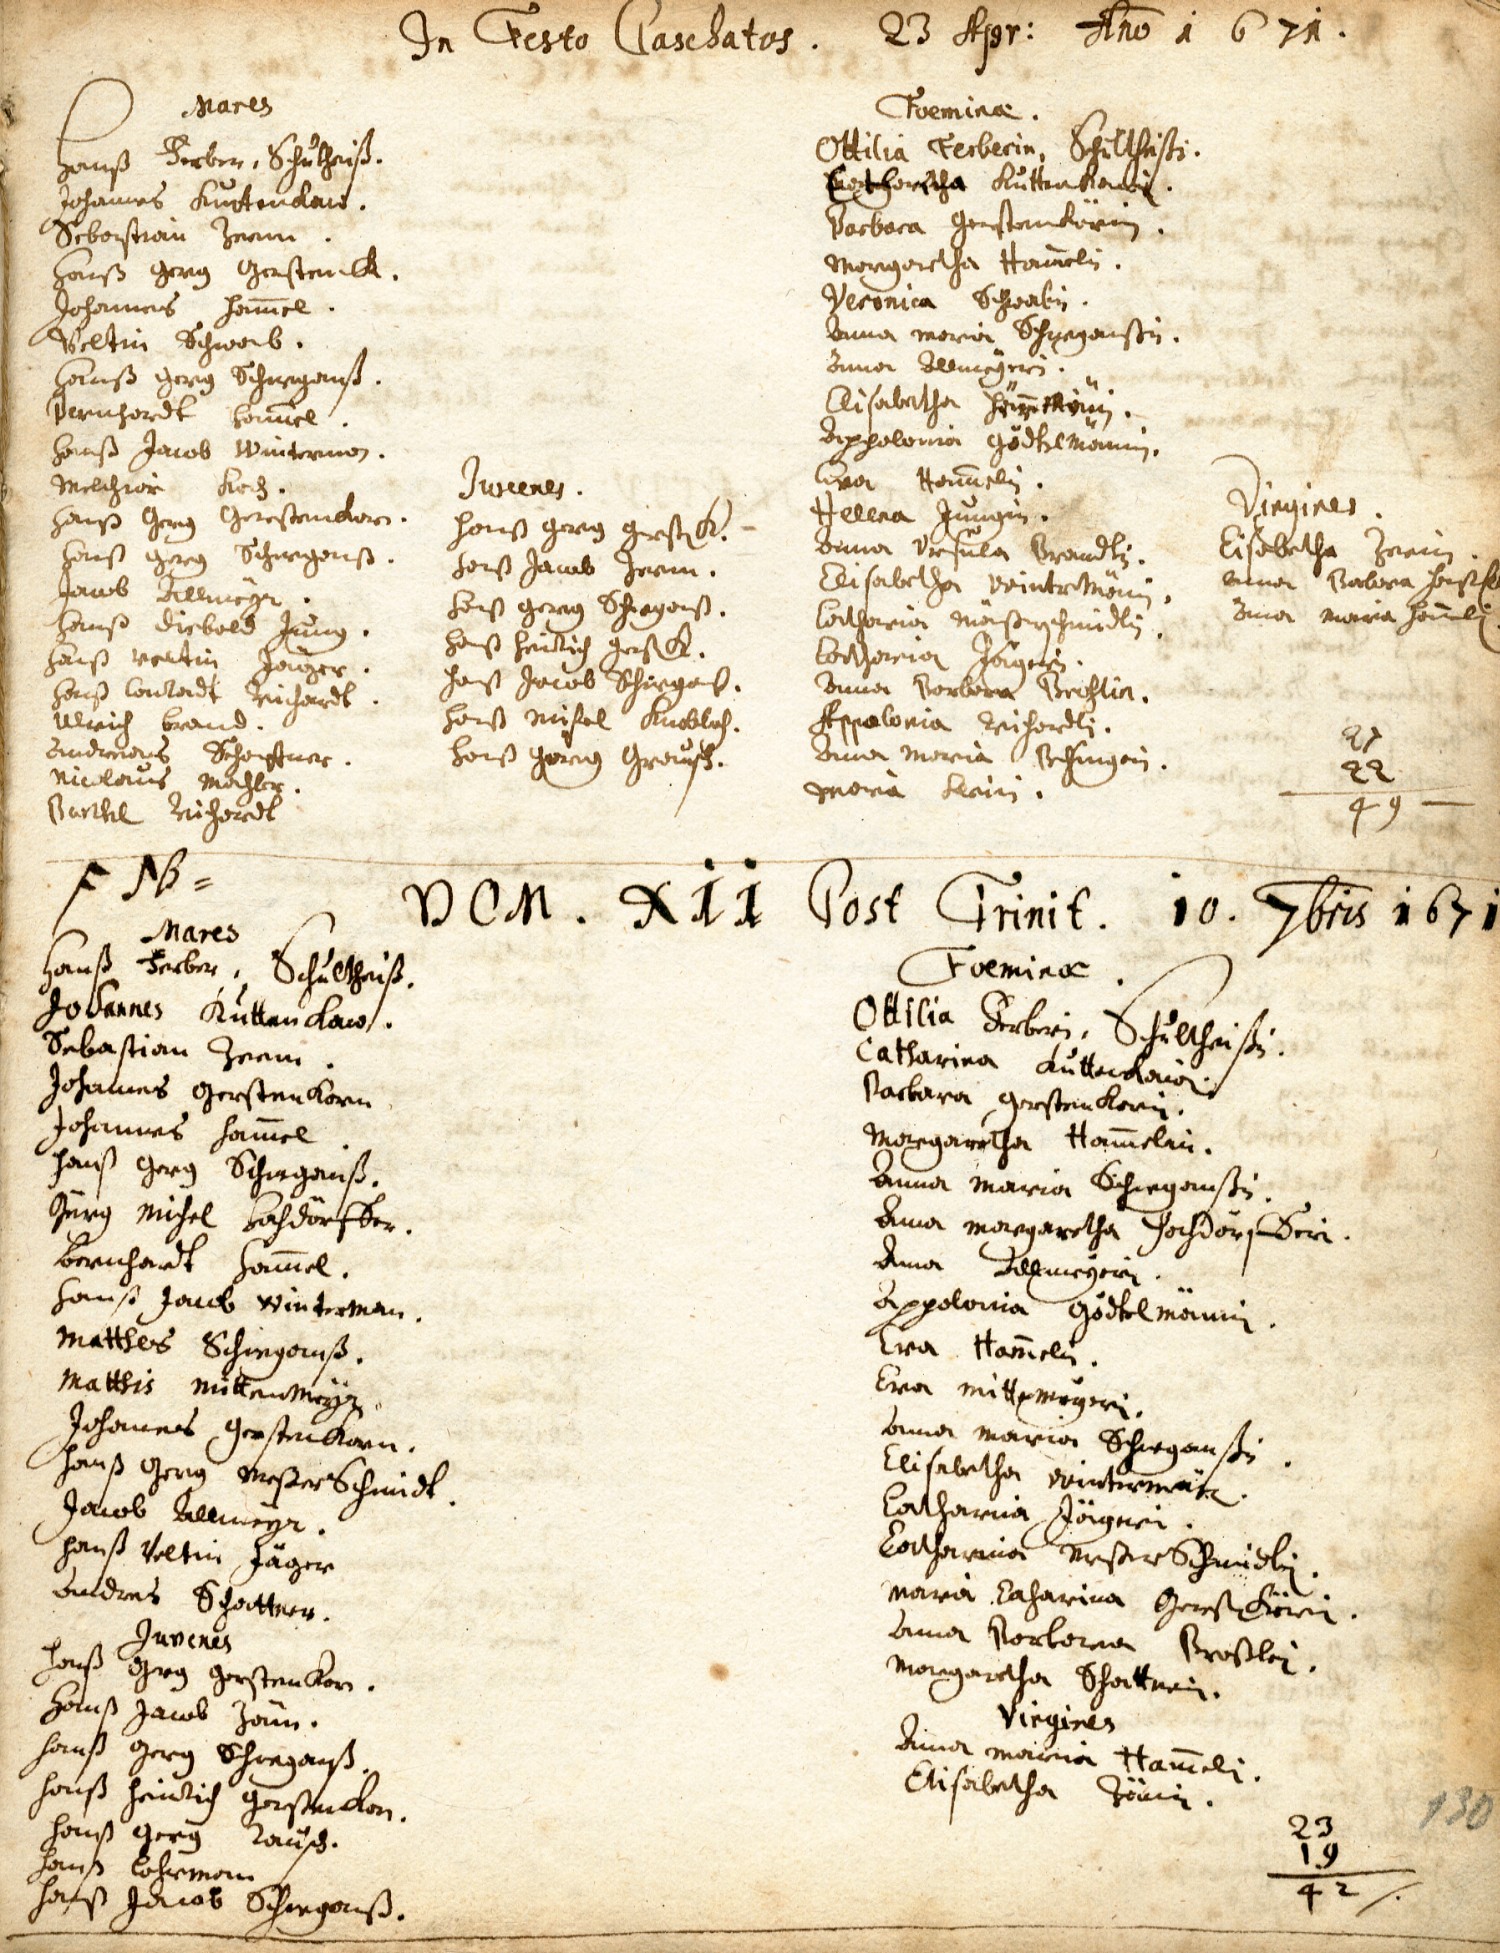 In Festo Paschatos. 23 Apr: Año 1671.
Mares
Hanß Ferber, Schultheiß.
Johannes Kuttenkaw.
Sebastian Zeenn.
Hanß Gerg GerstenK.
Johannes Ham̄el.
Veltin Schwab.
Hanß Gerg Schirganß.
Bernhardt Ham̄el.
Hanß Jacob Winterman.
Melchior Koch.
Hanß Gerg Gerstenkorn.
Hanß Gerg Schirganß.
Jacob Allmeÿr.
Hanß Diebold Jung.
Hanß Veltin Jäger.
Hanß Conradt Reichardt.
Ulrich Brand.
Andreas Schattner.
Nicolaus Machler.
Barthel Reichardt
Juvenes.
Hanß Gerg GerstK.
Hanß Jacob Zeenn.
Hanß Gerg Schirganß.
Hanß Heinrich GerstK.
Hanß Jacob Schirganß.
Hanß Michel Knobloch.
Hanß Georg Grausch.
Foeminæ.
Ottilia Ferberin, Schultheißi.
Kuttenkawi.
Barbara Gerstenkörin.
Margaretha Ham̄elin.
Veronica Schwabi.
Anna Maria Schirganßin.
Anna Allmeÿeri.
Elisabetha
Appolonia Gödtelmännin.
Eva Ham̄elin.
Hellena Jungin.
Anna Ursula Brandti.
Elisabetha Wintermänin.
Catharina Mäßerschmidtin.
Catharina Jägeri.
Anna Barbara
Appolonia Reichardti.
Anna Maria
Maria Kleini.
Virgines.
Elisabetha Zeenin.
Anna Barbara
Anna Maria Ham̄eli.
27
22
49
NB=
DOM. XII Post Trinit. 10. 7bris 1671
Mares
Hanß Ferber, Schultheiß.
Johannes Kuttenkaw.
Sebastian Zeenn.
Johannes Gerstenkorn
Johannes Ham̄el.
Hanß Gerg Schirganß.
Jürg Michel Hochdörffer.
Bernhardt Ham̄el.
Hanß Jacob Winterman.
Mattheis Schirganß.
Matthis Mittenmeÿr
Johannes Gerstenkorn.
Hanß Gerg MeßerSchmidt.
Jacob Allmeÿr.
Hanß Veltin Jäger
Andres Schattner.
Juvenes
Hanß Gerg Gerstenkorn.
Hanß Jacob Zänn.
Hanß Gerg Schirganß.
Hanß Heinrich Gerstenkorn.
Hanß Gerg Rausch.
Hanß Lohrman
Hanß Jacob Schirganß.
Foeminæ.
Ottilia Ferberi, Schultheißi.
Catharina Kuttenkawi.
Barbara Gerstenkorin.
Margaretha Ham̄elin.
Anna Maria Schirganßi.
Anna Margaretha Hochdörfferi.
Anna Allmeÿeri.
Appolonia Gödtelmännin.
Eva Ham̄elin.
Eva Mittemeÿeri.
Anna Maria Schirganßi.
Elisabetha Wintermän.
Catharina Jägeri.
Catharina MeßerSchmidti.
Maria Catharina Gerstkörin.
Anna Barbara
Margaretha Schattneri.
Virgines
Anna Maria Ham̄eli.
Elisabetha Zänin.
23
19
42
130